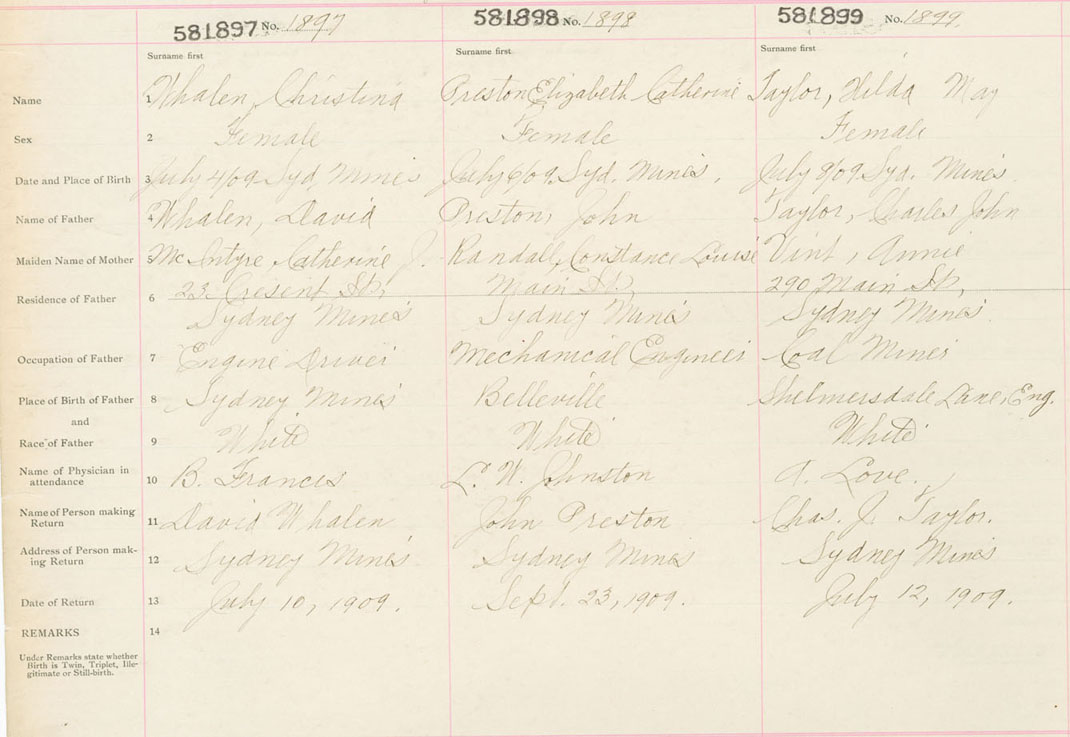 581897 No. 1897 581898 No. 1898 581899 No. 1899
Surname first Surname first Surname first
Name 1 Whalen, Christina Preston Elizabeth Catherine Taylor, Hilda May
Sex 2 Female Female Female
Date and Place of Birth 3 July 4/09 Syd. Mines July 6/09. Syd. Mines. July 8/09. Syd. Mines.
Name of Father 4 Whalen, David Preston, John Taylor, Charles John
Maiden Name of Mother 5 McIntyre, Catherine J. Randall, Constance Louise Vint, Annie
Residence of Father 6 23 Cresent St, Main St, 290 Main St,
Sydney Mines Sydney Mines Sydney Mines
Occupation of Father 7 Engine Driver Mechanical Engineer Coal Miner
Place of Birth of Father 8 Sydney Mines Belleville Shelmersdale Lane, Eng.
and
Race of Father 9 White White White
Name of Physician in
attendance 10 B. Francis L. W. Johnston A. Love.
Name of Person making
Return 11 David Whalen John Preston Chas. J. Taylor.
Address of Person mak-
ing Return 12 Sydney Mines Sydney Mines Sydney Mines
Date of Return 13 July 10, 1909. Sept. 23, 1909. July 12, 1909.
REMARKS 14
Under Remarks state whether
Birth is Twin, Triplet, Ille-
gitimate or Still-birth.